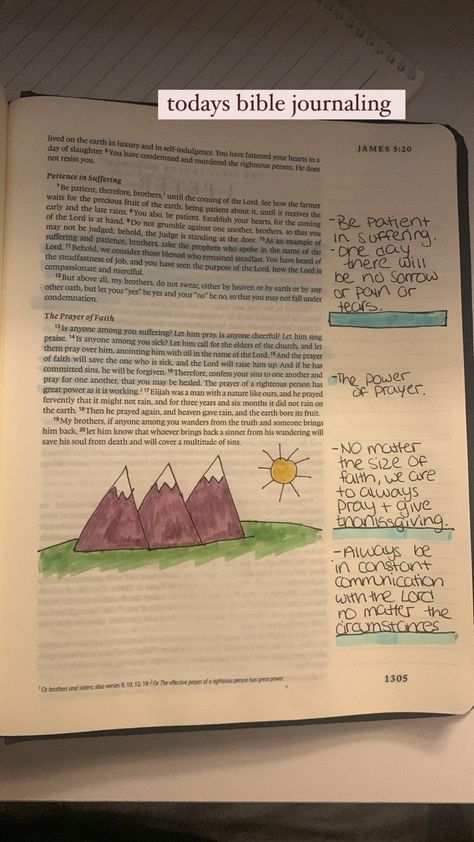 todays bible journaling
JAMES 5:20
lived on the earth in luxury and in self-indulgence. You have fattened your hearts in a
day of slaughter. 6 You have condemned and murdered the righteous person. He does
not resist you.
Patience in Suffering
7 Be patient, therefore, brothers,1 until the coming of the Lord. See how the farmer
waits for the precious fruit of the earth, being patient about it, until it receives the
early and the late rains. 8 You also, be patient. Establish your hearts, for the coming
of the Lord is at hand. 9 Do not grumble against one another, brothers, so that you
may not be judged; behold, the Judge is standing at the door. 10 As an example of
suffering and patience, brothers, take the prophets who spoke in the name of the
Lord. 11 Behold, we consider those blessed who remained steadfast. You have heard of
the steadfastness of Job, and you have seen the purpose of the Lord, how the Lord is
compassionate and merciful.
12 But above all, my brothers, do not swear, either by heaven or by earth or by any
other oath, but let your "yes" be yes and your "no" be no, so that you may not fall under
condemnation.
The Prayer of Faith
13 Is anyone among you suffering? Let him pray. Is anyone cheerful? Let him sing
praise. 14 Is anyone among you sick? Let him call for the elders of the church, and let
them pray over him, anointing him with oil in the name of the Lord. 15 And the prayer
of faith will save the one who is sick, and the Lord will raise him up. And if he has
committed sins, he will be forgiven. 16 Therefore, confess your sins to one another and
pray for one another, that you may be healed. The prayer of a righteous person has
great power as it is working.2 17 Elijah was a man with a nature like ours, and he prayed
fervently that it might not rain, and for three years and six months it did not rain on
the earth. 18 Then he prayed again, and heaven gave rain, and the earth bore its fruit.
19 My brothers, if anyone among you wanders from the truth and someone brings
him back, 20 let him know that whoever brings back a sinner from his wandering will
save his soul from death and will cover a multitude of sins.
-Be patient
in suffering.
One day
there will
be no sorrow
or pain or
tears.
-The power
of prayer.
-NO matter
the size of
faith, we are
to always
pray + give
thanksgiving.
-Always be
in constant
communication
with the LORD
no matter the
circumstances
1 Or brothers and sisters; also verses 9, 10, 12, 19 2 Or The effective prayer of a righteous person has great power
1305